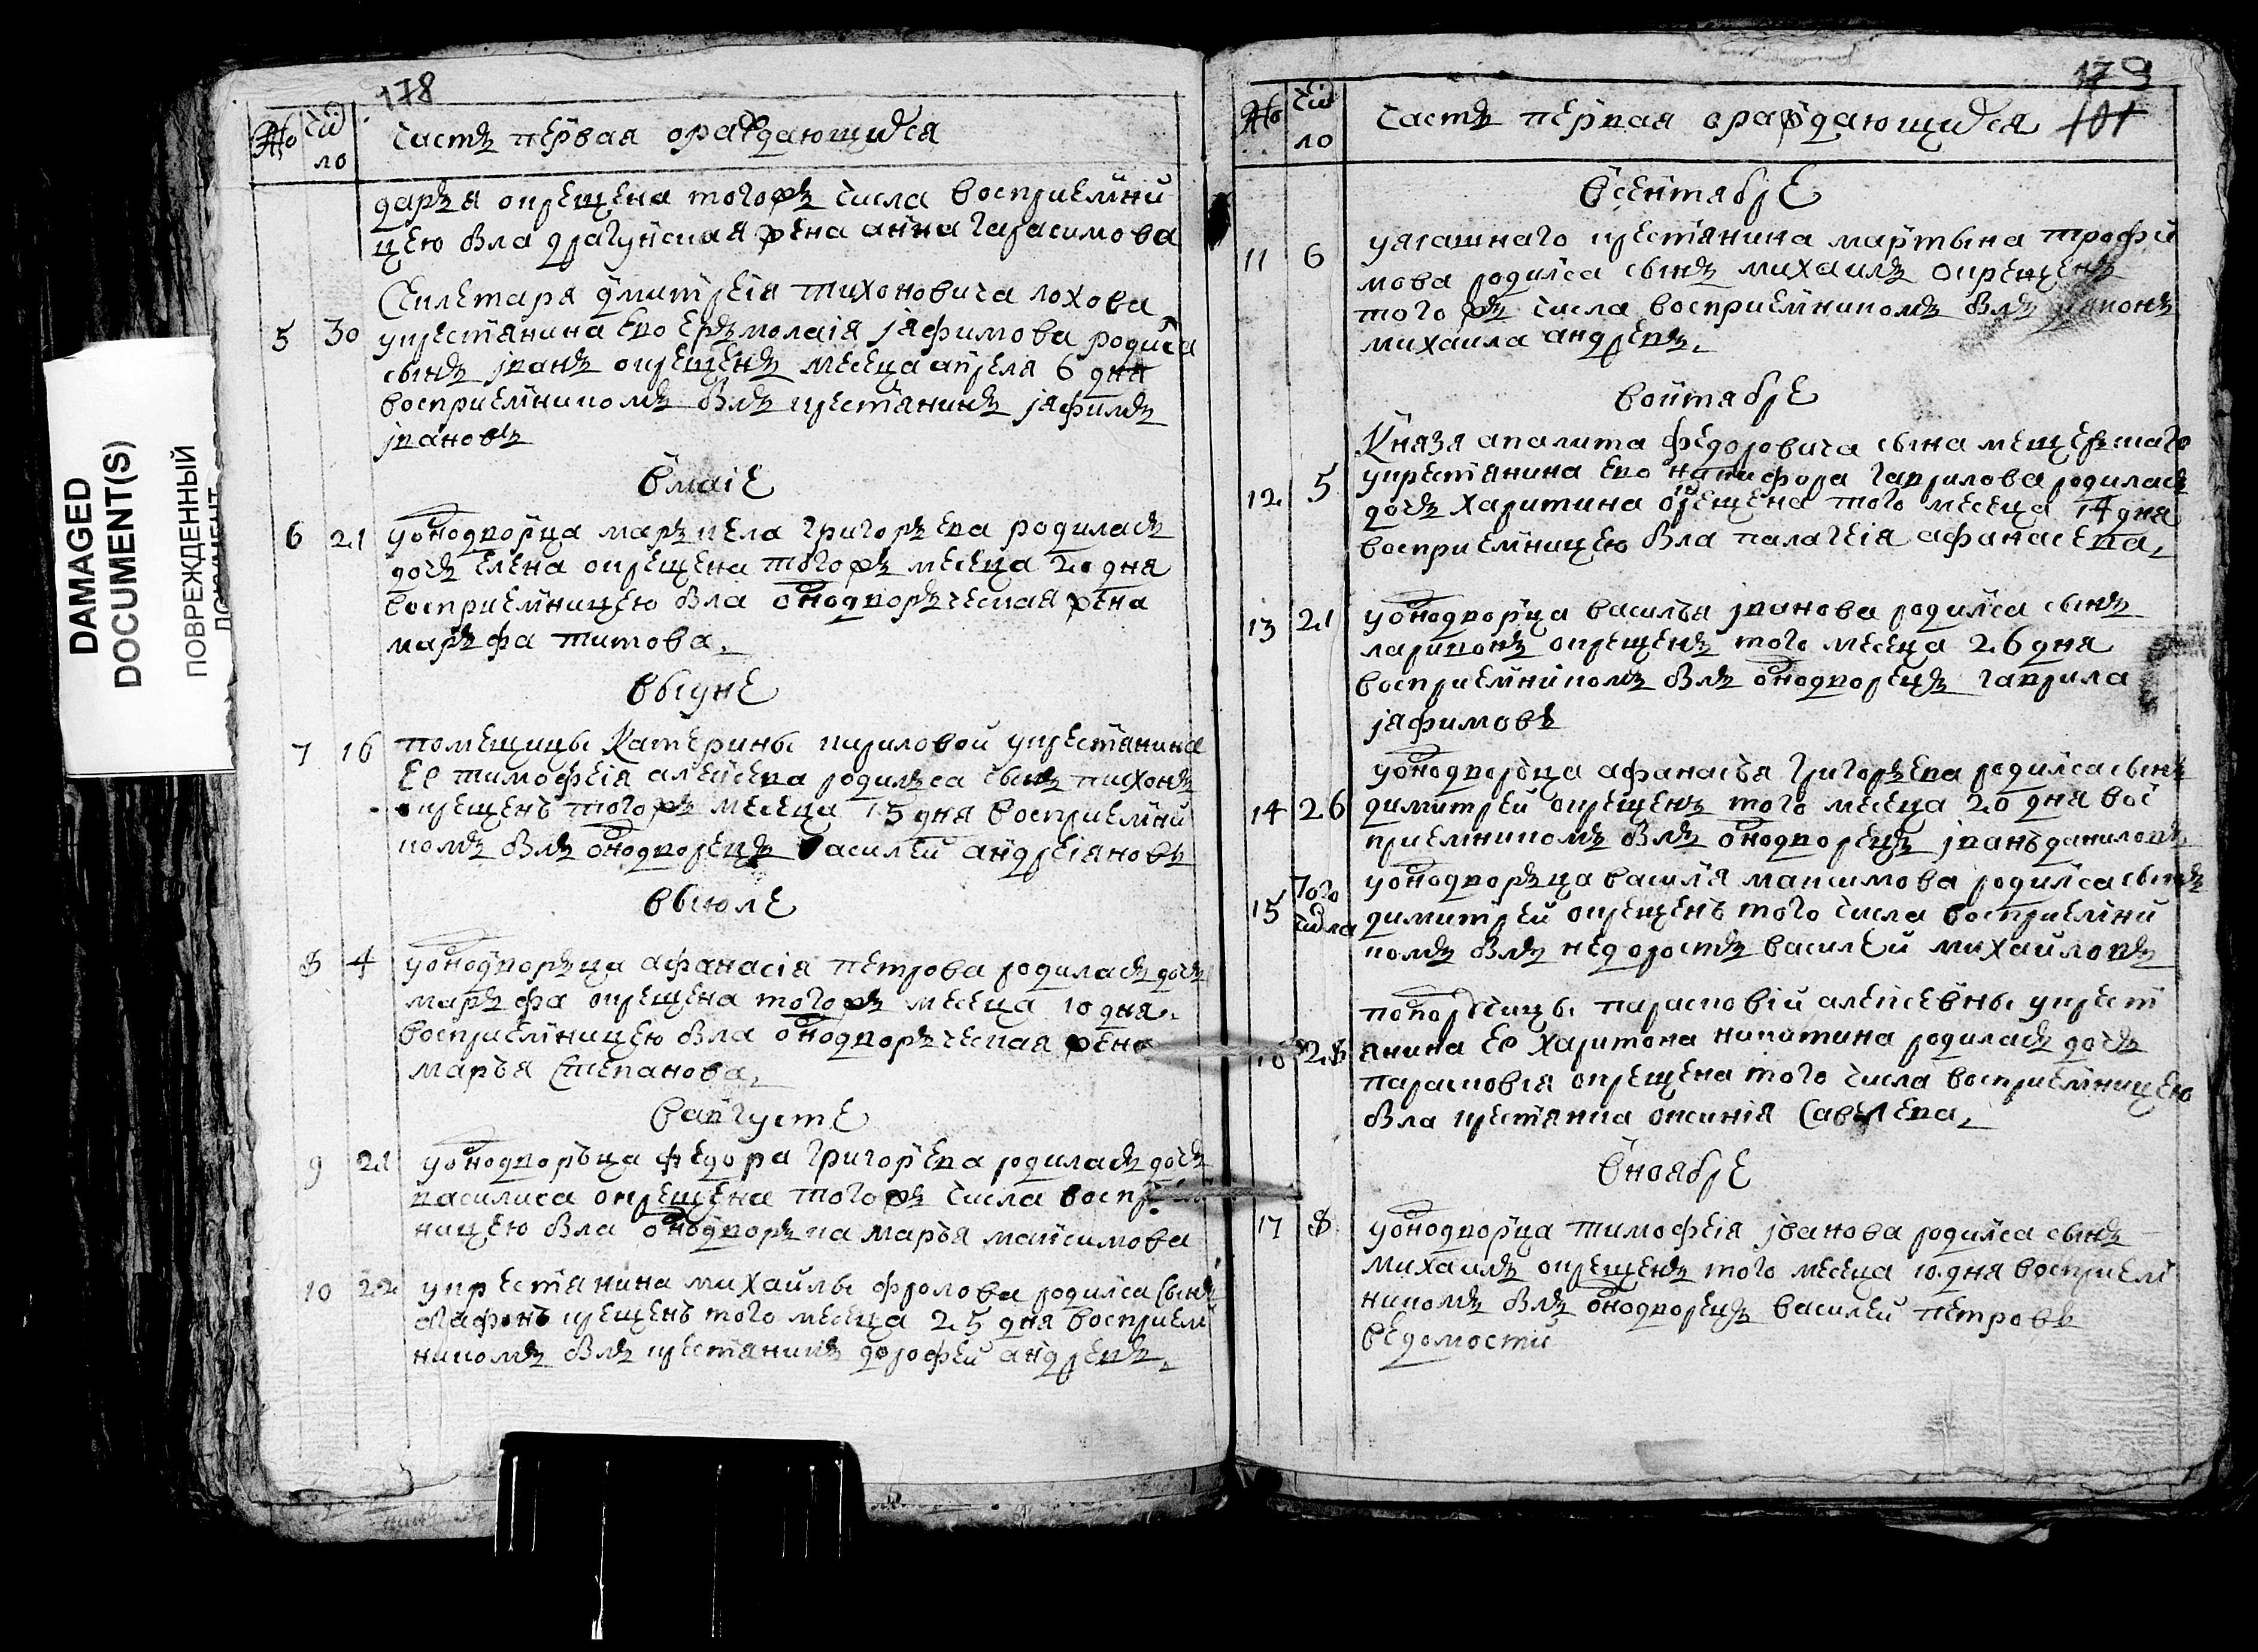 DAMAGED
DOCUMENT(S)
ПОВРЕЖДЕННЫЙ
178
№ число
Часть первая ораждающихся
дарья окрещена тогожъ числа восприемни
цею была драгунская жена анна гарасимова
Секлетаря дмитреія тихоновича лохова
5 30 укрестьянина ево ержмолаія јафимова родился
сынъ јванъ окрещенъ месеца апреля 6 дня
восприемникомъ былъ крестьянинъ јафимъ
јвановъ
вмаіе
6 21 уоднодворца маръкела григоръева родиласъ
дочъ елена окрещена тогожъ месеца 20 дня
восприемницею была однодворъческая жена
маръфа титова
выуне
7 16 помещицы Катерины кириловои укрестьянина
ее тимофеія алексеева родилъса сынъ тихонъ
окрещенъ тогожъ месеца 15 дня восприемни
комъ былъ однодворецъ василеи андреіяновъ
выюле
8 4 уоднодворъца афанасія петрова родиласъ дочъ
маръфа окрещена тогожъ месеца 10 дня
восприемницею была однодворъческая жена
маръя степанова
вавгусте
9 21 уоднодворъца федора григоръева родиласъ дочъ
василиса окрещена тогожъ числа восприем
ницею была однодворъка маръя максимова
10 22 укрестьянина михаилы фролова родился сынъ
агафонъ крещенъ того месеца 25 дня восприем
никомъ былъ крестьянинъ дорофеи андреевъ
179
101
№ число
Часть первая ораждающихся
всентябре
11 6 уясашнаго крестьянина мартына трофи
мова родился сынъ михаилъ окрещенъ
того жъ числа восприемникомъ былъ
михаила андреевъ
воктябре
Князя аполита федоровича сына мещерскаго
12 5 укрестьянина ево никифора гаврилова родиласъ
дочъ харитина окрещена того месеца 14 дня
восприемницею была палагеія афанасева
13 21 уоднодворца василья јванова родился сынъ
ларивонъ окрещенъ того месеца 26 дня
восприемникомъ былъ однодворецъ гаврила
јафимовъ
уоднодворъца афанасья григоръева родился сынъ
14 26 димитреи окрещенъ того месеца 20 дня вос
приемникомъ былъ однодворецъ јванъ даниловъ
15 того числа уоднодворъца василя максимова родился сынъ
димитреи окрещенъ того числа восприемни
комъ былъ недоросль василеи михаиловъ
парасковіи алексевны укрест
16 28 янина ее харитона никитина родиласъ дочъ
парасковея окрещена того числа восприемницею
была крестянка оксинія савелева
вноябре
17 8 уоднодворца тимофеія јванова родился сынъ
михаилъ окрещенъ того месеца 10 дня восприем
никомъ былъ однодворецъ василеи петровъ
ведомости